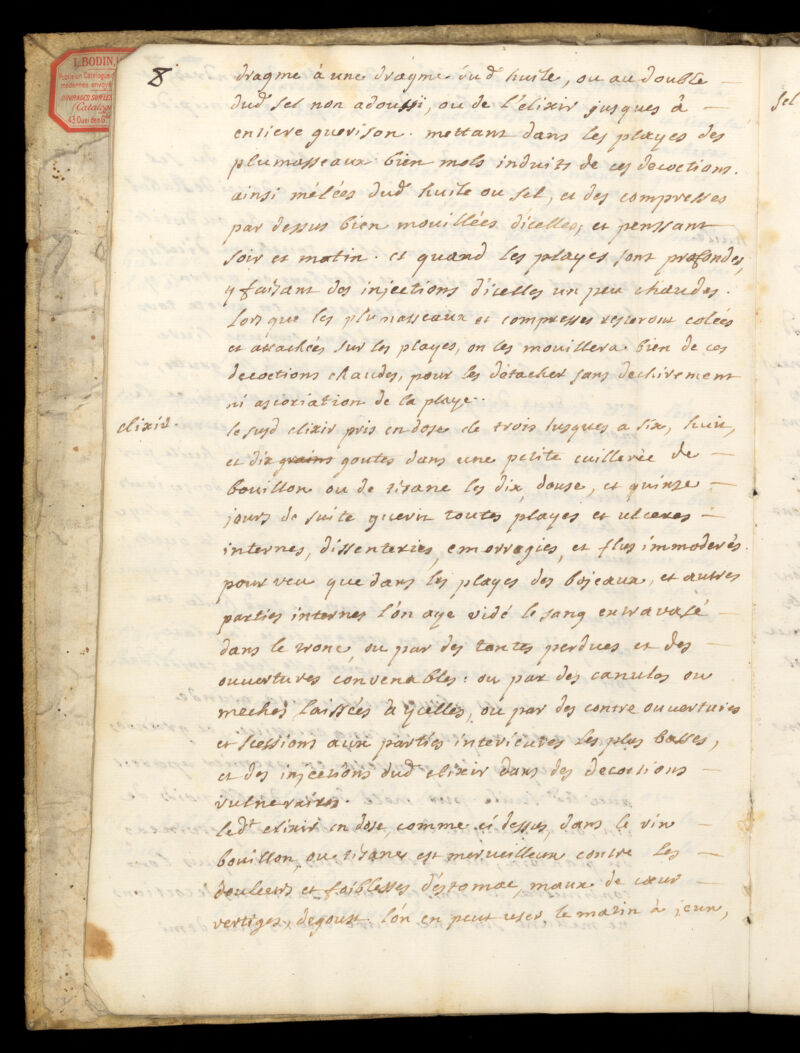 8
L. BODIN, L
Publie un Catalogue
modernes envoyé
OUVRAGES SUR LES
(Catalog
43, Quai des G
dragme à une dragme dud.t huile, ou au double
dud.t sel non adoussi, ou de l'élixir jusques à
entiere guerison. mettant dans les playes des
plumasseaux bien mols induits de ces decoctions.
ainsi mélées dud.t huile ou sel, et des compresses
par dessus bien mouillées dicelles, et penssant
soir et matin. et quand les playes sont profondes,
y faisant des injections dicelles un peu chaudes.
lors que les plumasseaux et compresses resteront colées
et attachées sur les playes, on les mouillera bien de ces
decoctions chaudes, pour les détacher sans dechirement
ni ascoriation de la playe.
elixir.
le susd elixir pris en dose de trois jusques a six, huit,
et dix grains goutes dans une petite cuillerée de
bouillon ou de tisane les dix, douse, et quinze
jours de suite guerit toutes playes et ulceres
internes, dissenteries, emorragies, et flus immoderés.
pourveu que dans les playes des bojeaux, et autres
parties internes l'on aye vidé le sang extravasé
dans le tronc, ou par des tantes perdues et des
ouvertures convenables: ou par des canules ou
meches laissées à ycelles, ou par des contre ouvertures
et scessions aux parties interieures les plus basses,
et des injections dud.t elixir dans des decoctions
vulneraires.
led.t elixir en dose, comme ci dessus, dans le vin
bouillon, ou tisane est merveilleux contre les
douleurs et foiblesses d'éstomac, maux de cœur
vertiges, degoust. l'on en peut user le matin à jeun,
sel